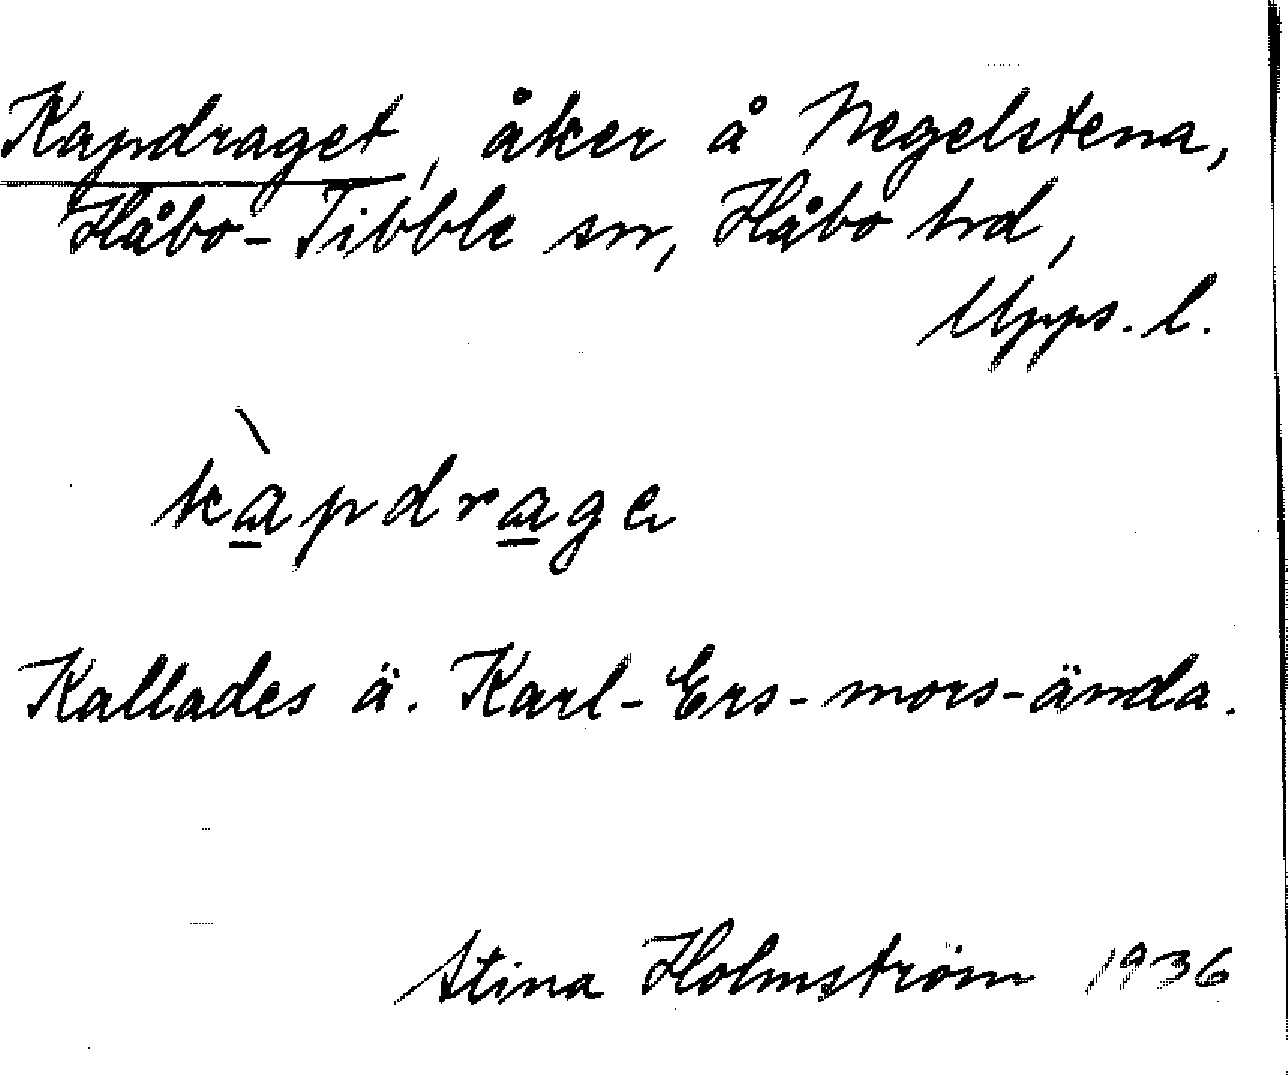 Kapdraget, åker å Negelstena,
Håbo-Tibble sn, Håbo hd,
Upps. l.
kàpdrage
Kallades ä. Karl-Ers-mors-ända.
Stina Holmström 1936